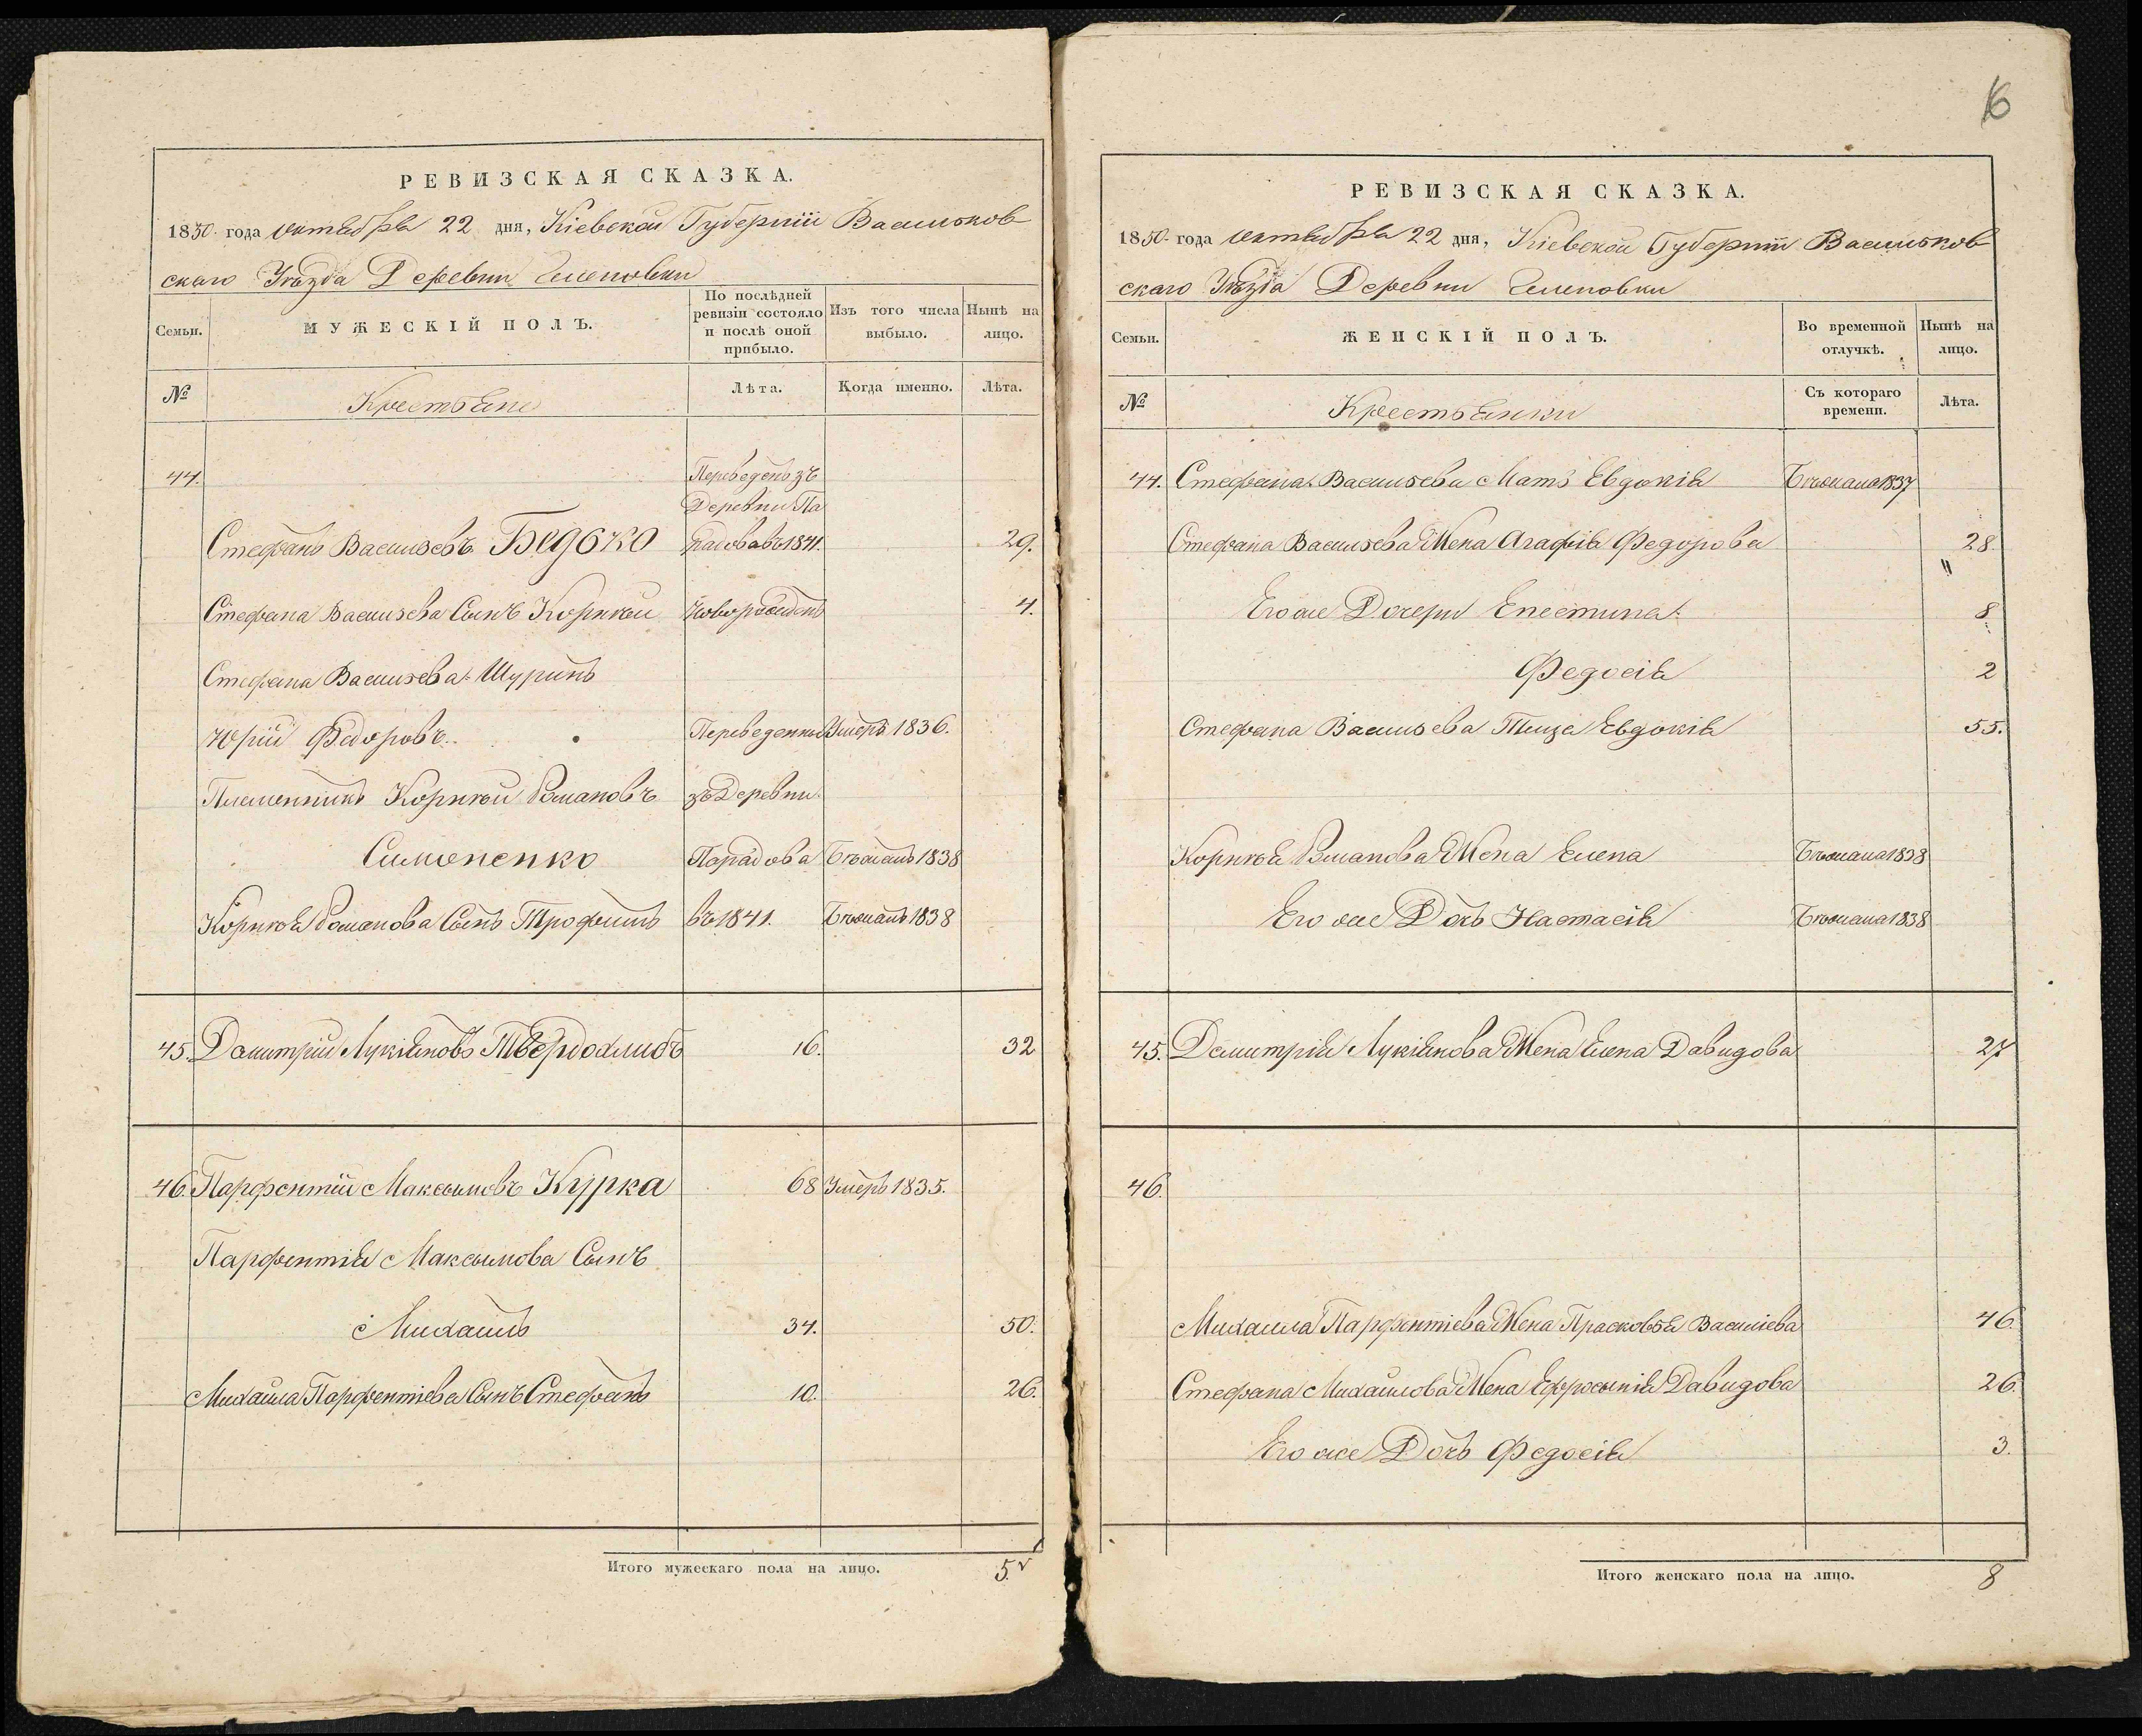 РЕВИЗСКАЯ СКАЗКА.
1850 года октября 22 дня, Кіевской Губерніи Васильков
скаго Уѣзда Деревни Еленовки
Семьи.
МУЖЕСКІЙ ПОЛЪ.
По послѣдней ревизіи состояло и послѣ оной прибыло.
Изъ того числа выбыло.
Нынѣ на лицо.
№
Крестьяне
Лѣта.
Когда именно.
Лѣта.
44. Переведенъ зъ
Деревни Па
Стефанъ Васильевъ Бедько радова въ 1841. 29.
Стефана Васильева Сынъ Корнѣй новорожденъ 4.
Стефана Васильева Шуринъ
Юрій Федоровъ. Переведенны Умеръ 1836.
Племенникъ Корнѣй Романовъ зъ Деревни
Симоненко Парадова Бѣжалъ 1838
Корнѣя Романова Сынъ Трофимъ въ 1841. Бѣжалъ 1838
45. Димитрій Лукіяновъ Твердохлибъ 16. 32
46. Парфентій Максимовъ Курка 68 Умеръ 1835.
Парфентія Максимова Сынъ
Михаилъ 34. 50.
Михаила Парфентіева Сынъ Стефанъ 10. 26.
Итого мужескаго пола на лицо. 5
6
РЕВИЗСКАЯ СКАЗКА.
1850 года октября 22 дня, Кіевской Губерніи Васильков
скаго Уѣзда Деревни Еленовки
Семьи.
ЖЕНСКІЙ ПОЛЪ.
Во временной отлучкѣ.
Нынѣ на лицо.
№
Крестьянки
Съ котораго времени.
Лѣта.
44. Стефана Васильева Мать Евдокія Бѣжала 1837
Стефана Васильева Жена Агафія Федорова 28.
Его же Дочери Епестина 8
Федосія 2
Стефана Васильева Теща Евдокія 55.
Корнѣя Романова Жена Елена Бѣжала 1838
Его же Дочь Настасія Бѣжала 1838
45. Димитрія Лукіянова Жена Елена Давидова 27
46.
Михаила Парфентіева Жена Прасковья Василіева 46.
Стефана Михаилова Жена Ефросынія Давидова 26.
Его же Дочь Федосія 3.
Итого женскаго пола на лицо. 8